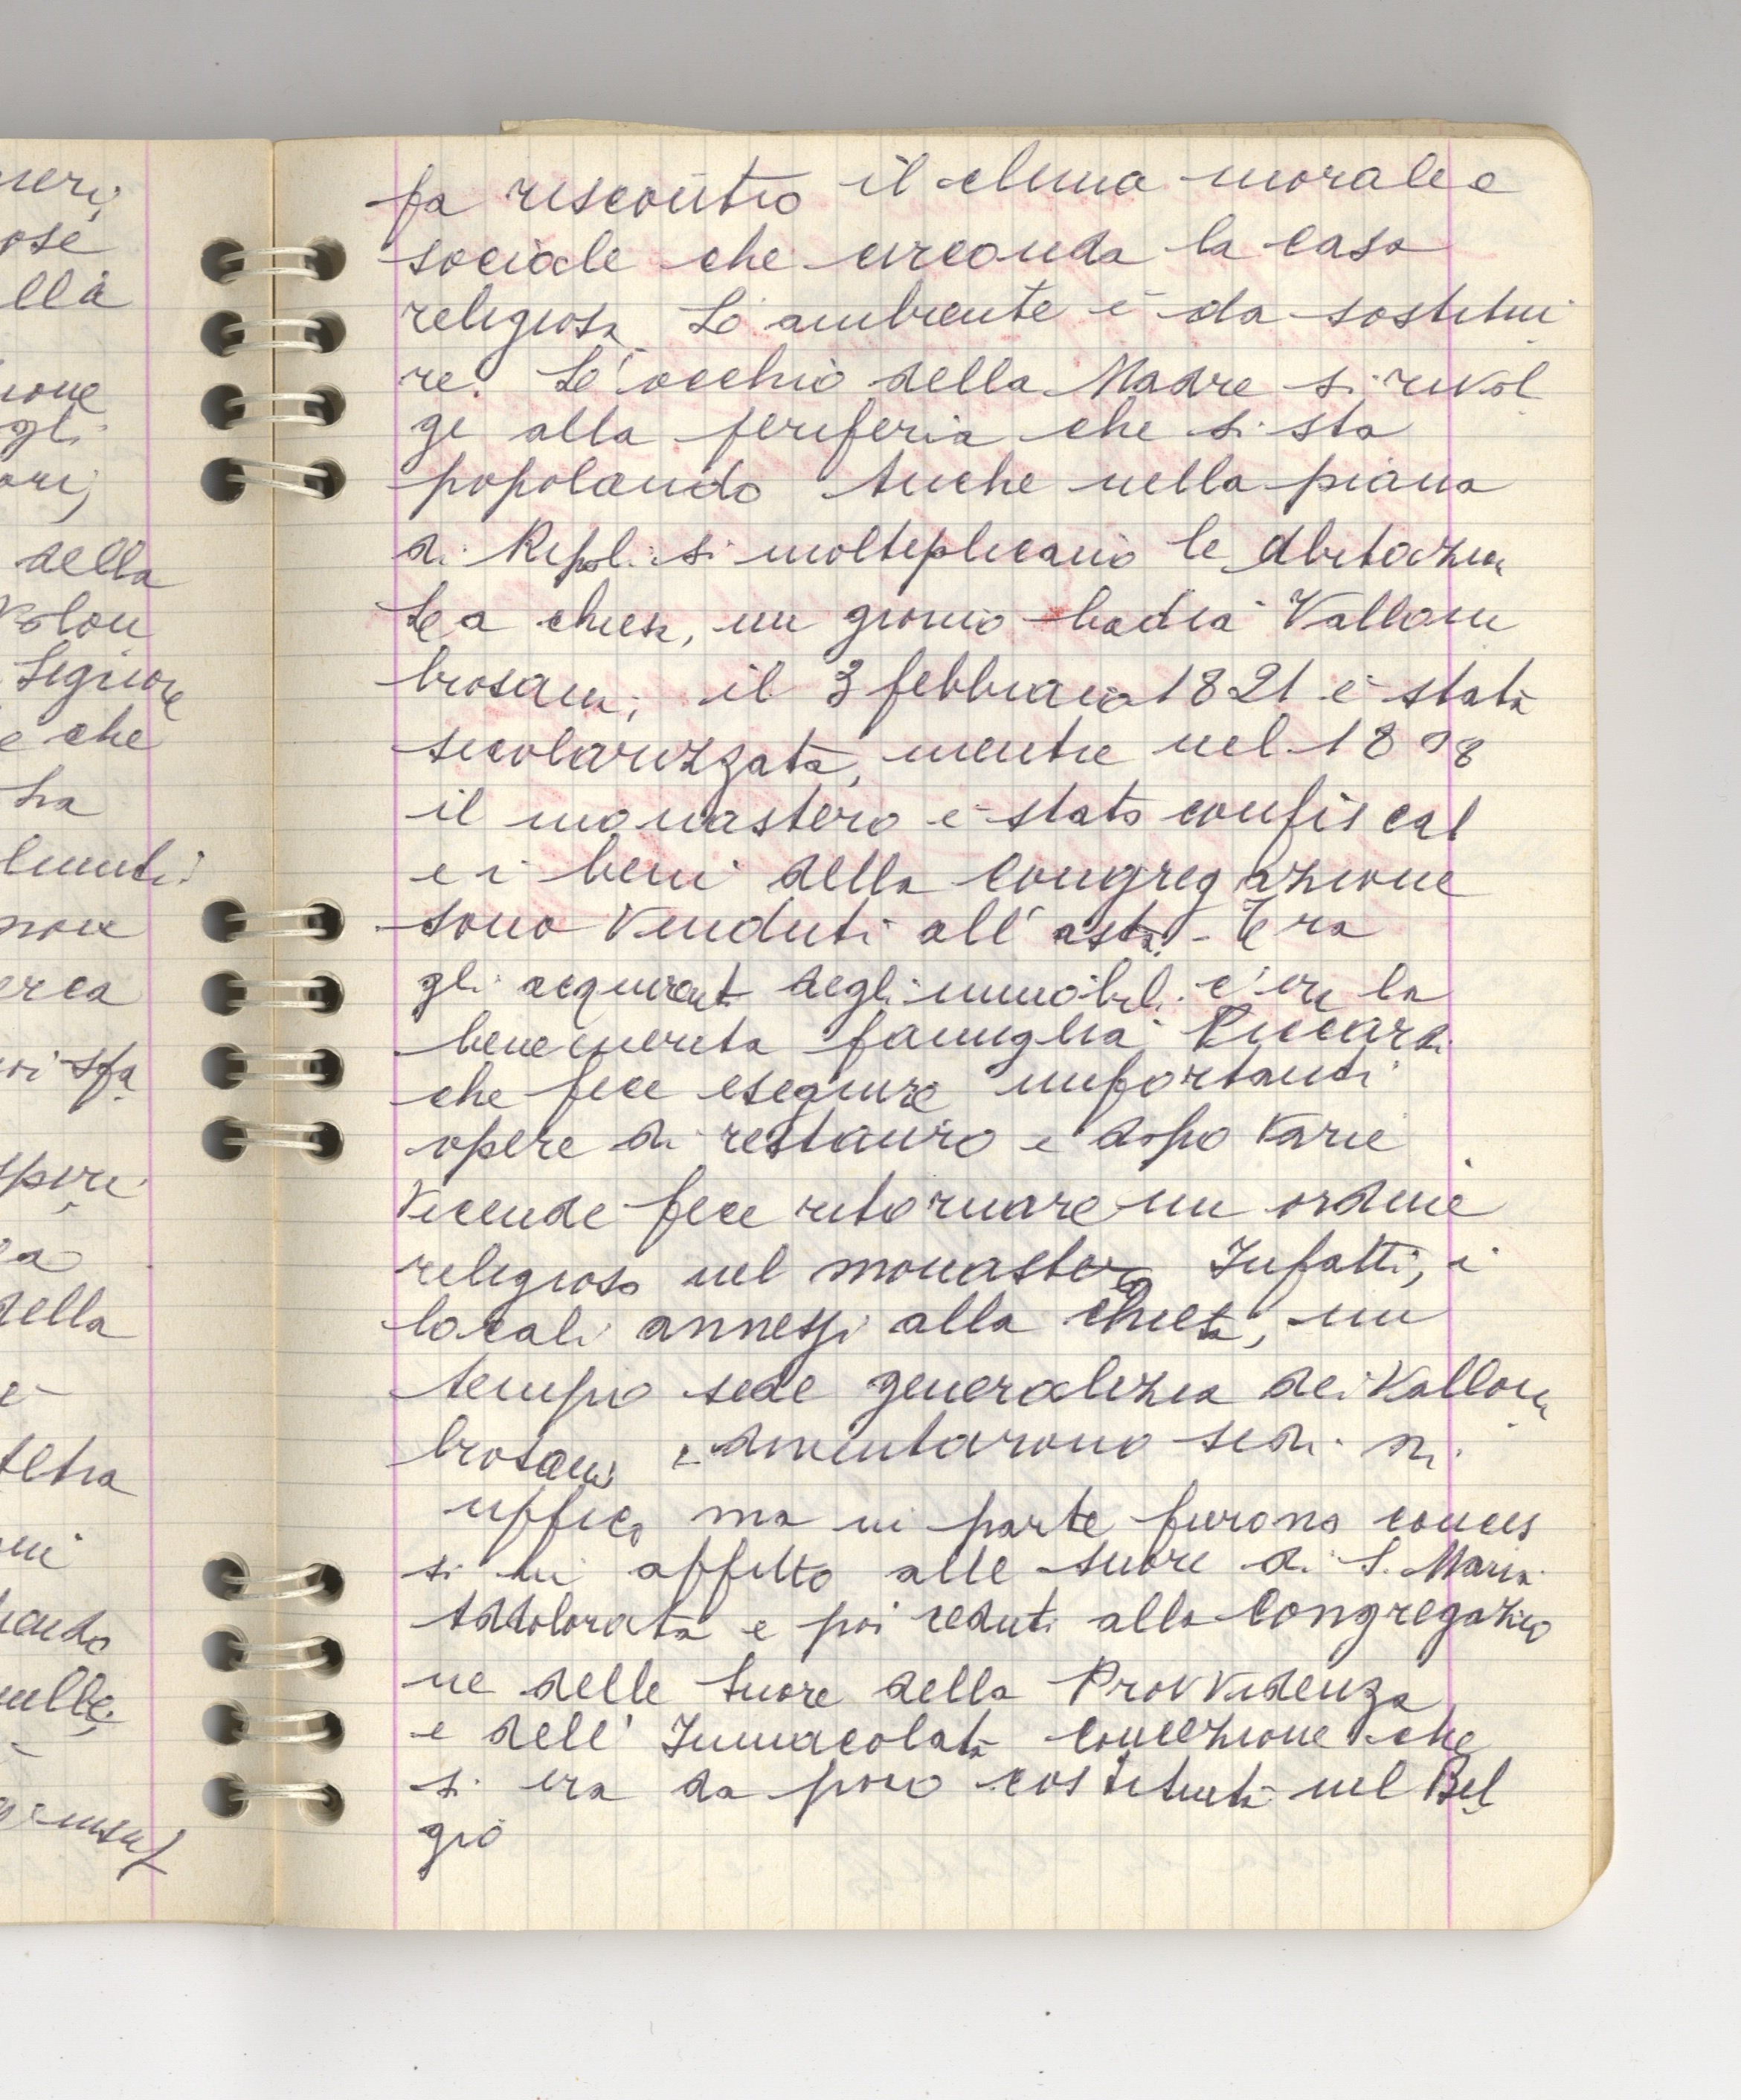 neri,
ose
ella
ione
gli
ori,
della
Volon
Signore
e che
ha
lmente
erca
ella
e
Altra
quelle,
fa riscontro il clima morale e
sociale che circonda la casa
religiosa L'ambiente è da sostitui
re. L'occhio della Madre si rivol
ge alla periferia che si sta
popolando Anche nella piana
di Ripoli si molteplicano le abitazioni
La chiesa, un giorno badia Vallom
brosana, il 3 febbraio 1821 è stata
secolarizzata, mentre nel 1898
il monastero è stato confiscat
e i beni della Congregazione
sono venduti all'asta. Tra
gli acquirenti degli immobili c'era la
benemerita famiglia
che fece eseguire importanti
opere di restauro e dopo varie
vicende fece ritornare un ordine
religioso nel monastero Infatti, i
locali annessi alla chiesa, un
tempo sede generalizia dei Vallom
brosani diventarono sedi di
uffici, ma in parte furono conces
si in affitto alle suore di S. Maria
Addolorata e poi ceduti alla Congregazio
ne delle Suore della Provvidenza
e dell'Immacolata Concezione che
si era da poco costituita nel Bel
gio